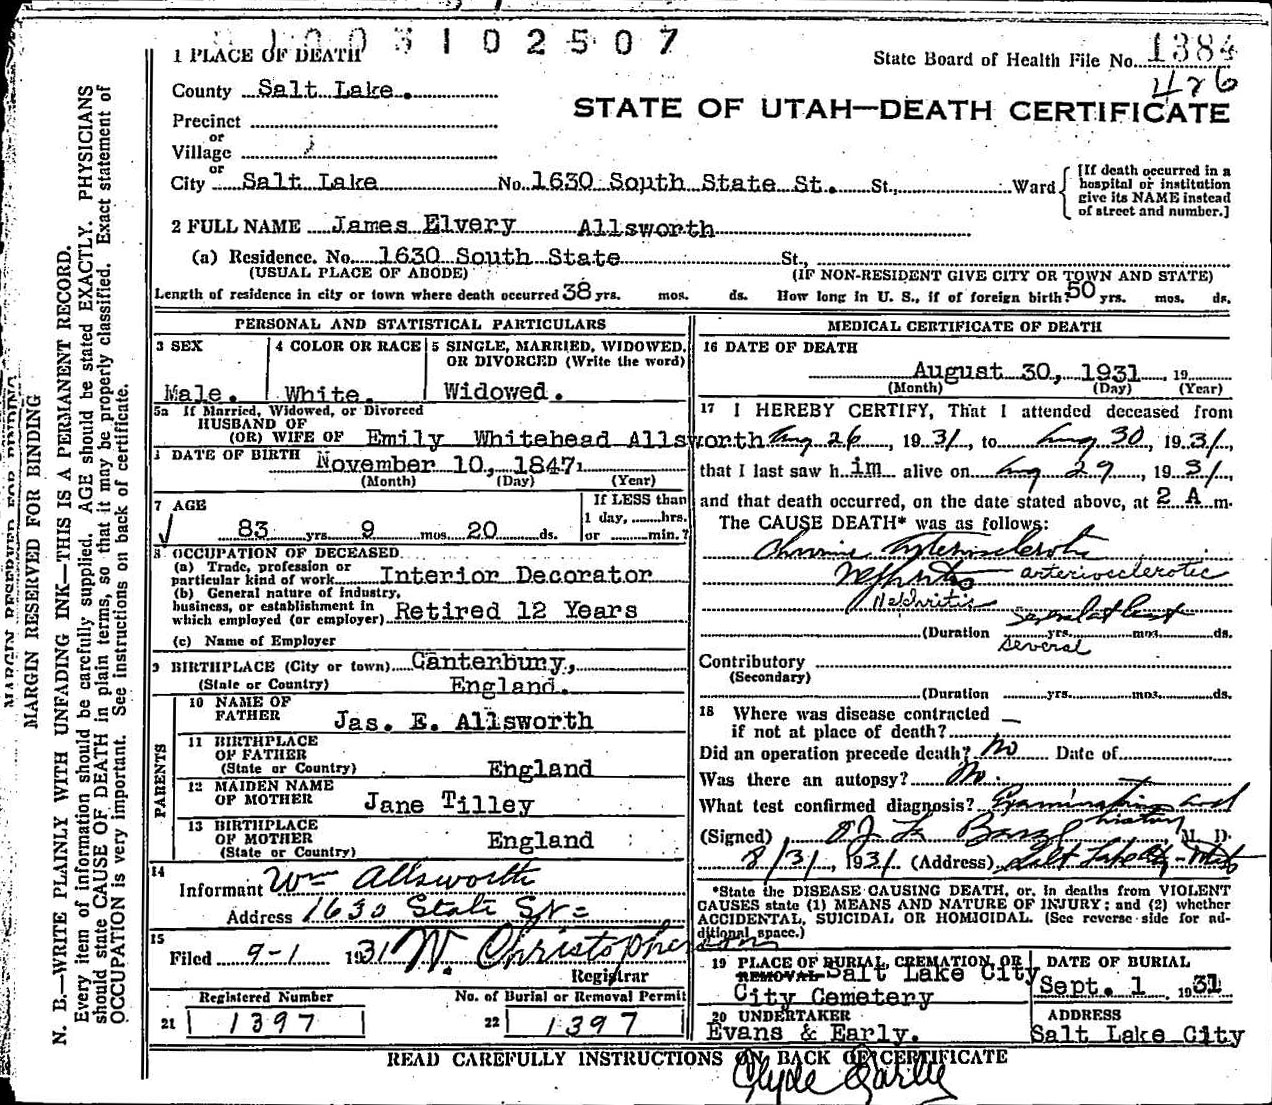 1003102507
1 PLACE OF DEATH
State Board of Health File No. 1384
426
County Salt Lake.
STATE OF UTAH—DEATH CERTIFICATE
Precinct
or
Village
or
City Salt Lake No. 1630 South State St. St., Ward
[If death occurred in a hospital or institution give its NAME instead of street and number.]
2 FULL NAME James Elvery Allsworth
(a) Residence. No. 1630 South State St.,
(USUAL PLACE OF ABODE) (IF NON-RESIDENT GIVE CITY OR TOWN AND STATE)
Length of residence in city or town where death occurred 38 yrs. mos. ds. How long in U. S., if of foreign birth? 50 yrs. mos. ds.
PERSONAL AND STATISTICAL PARTICULARS
3 SEX
Male.
4 COLOR OR RACE
White.
5 SINGLE, MARRIED, WIDOWED,
OR DIVORCED (Write the word)
Widowed.
5a If Married, Widowed, or Divorced
HUSBAND OF
(OR) WIFE OF Emily Whitehead Allsworth
DATE OF BIRTH November 10, 1847
(Month) (Day) (Year)
7 AGE
83 yrs. 9 mos. 20 ds.
If LESS than
1 day, hrs.
or min.?
8 OCCUPATION OF DECEASED
(a) Trade, profession or
particular kind of work Interior Decorator
(b) General nature of industry,
business, or establishment in
which employed (or employer) Retired 12 Years
(c) Name of Employer
9 BIRTHPLACE (City or town) Canterbury,
(State or Country) England.
PARENTS
10 NAME OF
FATHER Jas. E. Allsworth
11 BIRTHPLACE
OF FATHER
(State or Country) England
12 MAIDEN NAME
OF MOTHER Jane Tilley
13 BIRTHPLACE
OF MOTHER
(State or Country) England
14
Informant Wm Allsworth
Address 1630 State St
15
Filed 9-1 1931 W. Christopherson
Registrar
Registered Number
21 1397
No. of Burial or Removal Permit
22 1397
MEDICAL CERTIFICATE OF DEATH
16 DATE OF DEATH
August 30, 1931, 19
(Month) (Day) (Year)
17 I HEREBY CERTIFY, That I attended deceased from
Aug 26, 1931, to Aug 30, 1931,
that I last saw h im alive on Aug 29, 1931,
and that death occurred, on the date stated above, at 2 A m.
The CAUSE DEATH* was as follows:
Chronic Arteriosclerotic
Nephritis arteriosclerotic
Nephritis
Several at least
(Duration yrs. mos. ds.
several
Contributory
(Secondary)
(Duration yrs. mos. ds.
18 Where was disease contracted
if not at place of death?
Did an operation precede death? No Date of
Was there an autopsy? No.
What test confirmed diagnosis? Examination and
history
(Signed) M. D.
8/31, 1931 (Address) Salt Lake City - Utah
*State the DISEASE CAUSING DEATH, or, in deaths from VIOLENT
CAUSES state (1) MEANS AND NATURE OF INJURY; and (2) whether
ACCIDENTAL, SUICIDAL OR HOMICIDAL. (See reverse side for ad-
ditional space.)
19 PLACE OF BURIAL, CREMATION, OR
REMOVAL Salt Lake City
City Cemetery
DATE OF BURIAL
Sept. 1, 1931
20 UNDERTAKER
Evans & Early.
ADDRESS
Salt Lake City
READ CAREFULLY INSTRUCTIONS ON BACK OF CERTIFICATE
Clyde Early
MARGIN RESERVED FOR BINDING
MARGIN RESERVED FOR BINDING
N. B.—WRITE PLAINLY WITH UNFADING INK—THIS IS A PERMANENT RECORD.
Every item of information should be carefully supplied. AGE should be stated EXACTLY. PHYSICIANS
should state CAUSE OF DEATH in plain terms, so that it may be properly classified. Exact statement of
OCCUPATION is very important. See instructions on back of certificate.